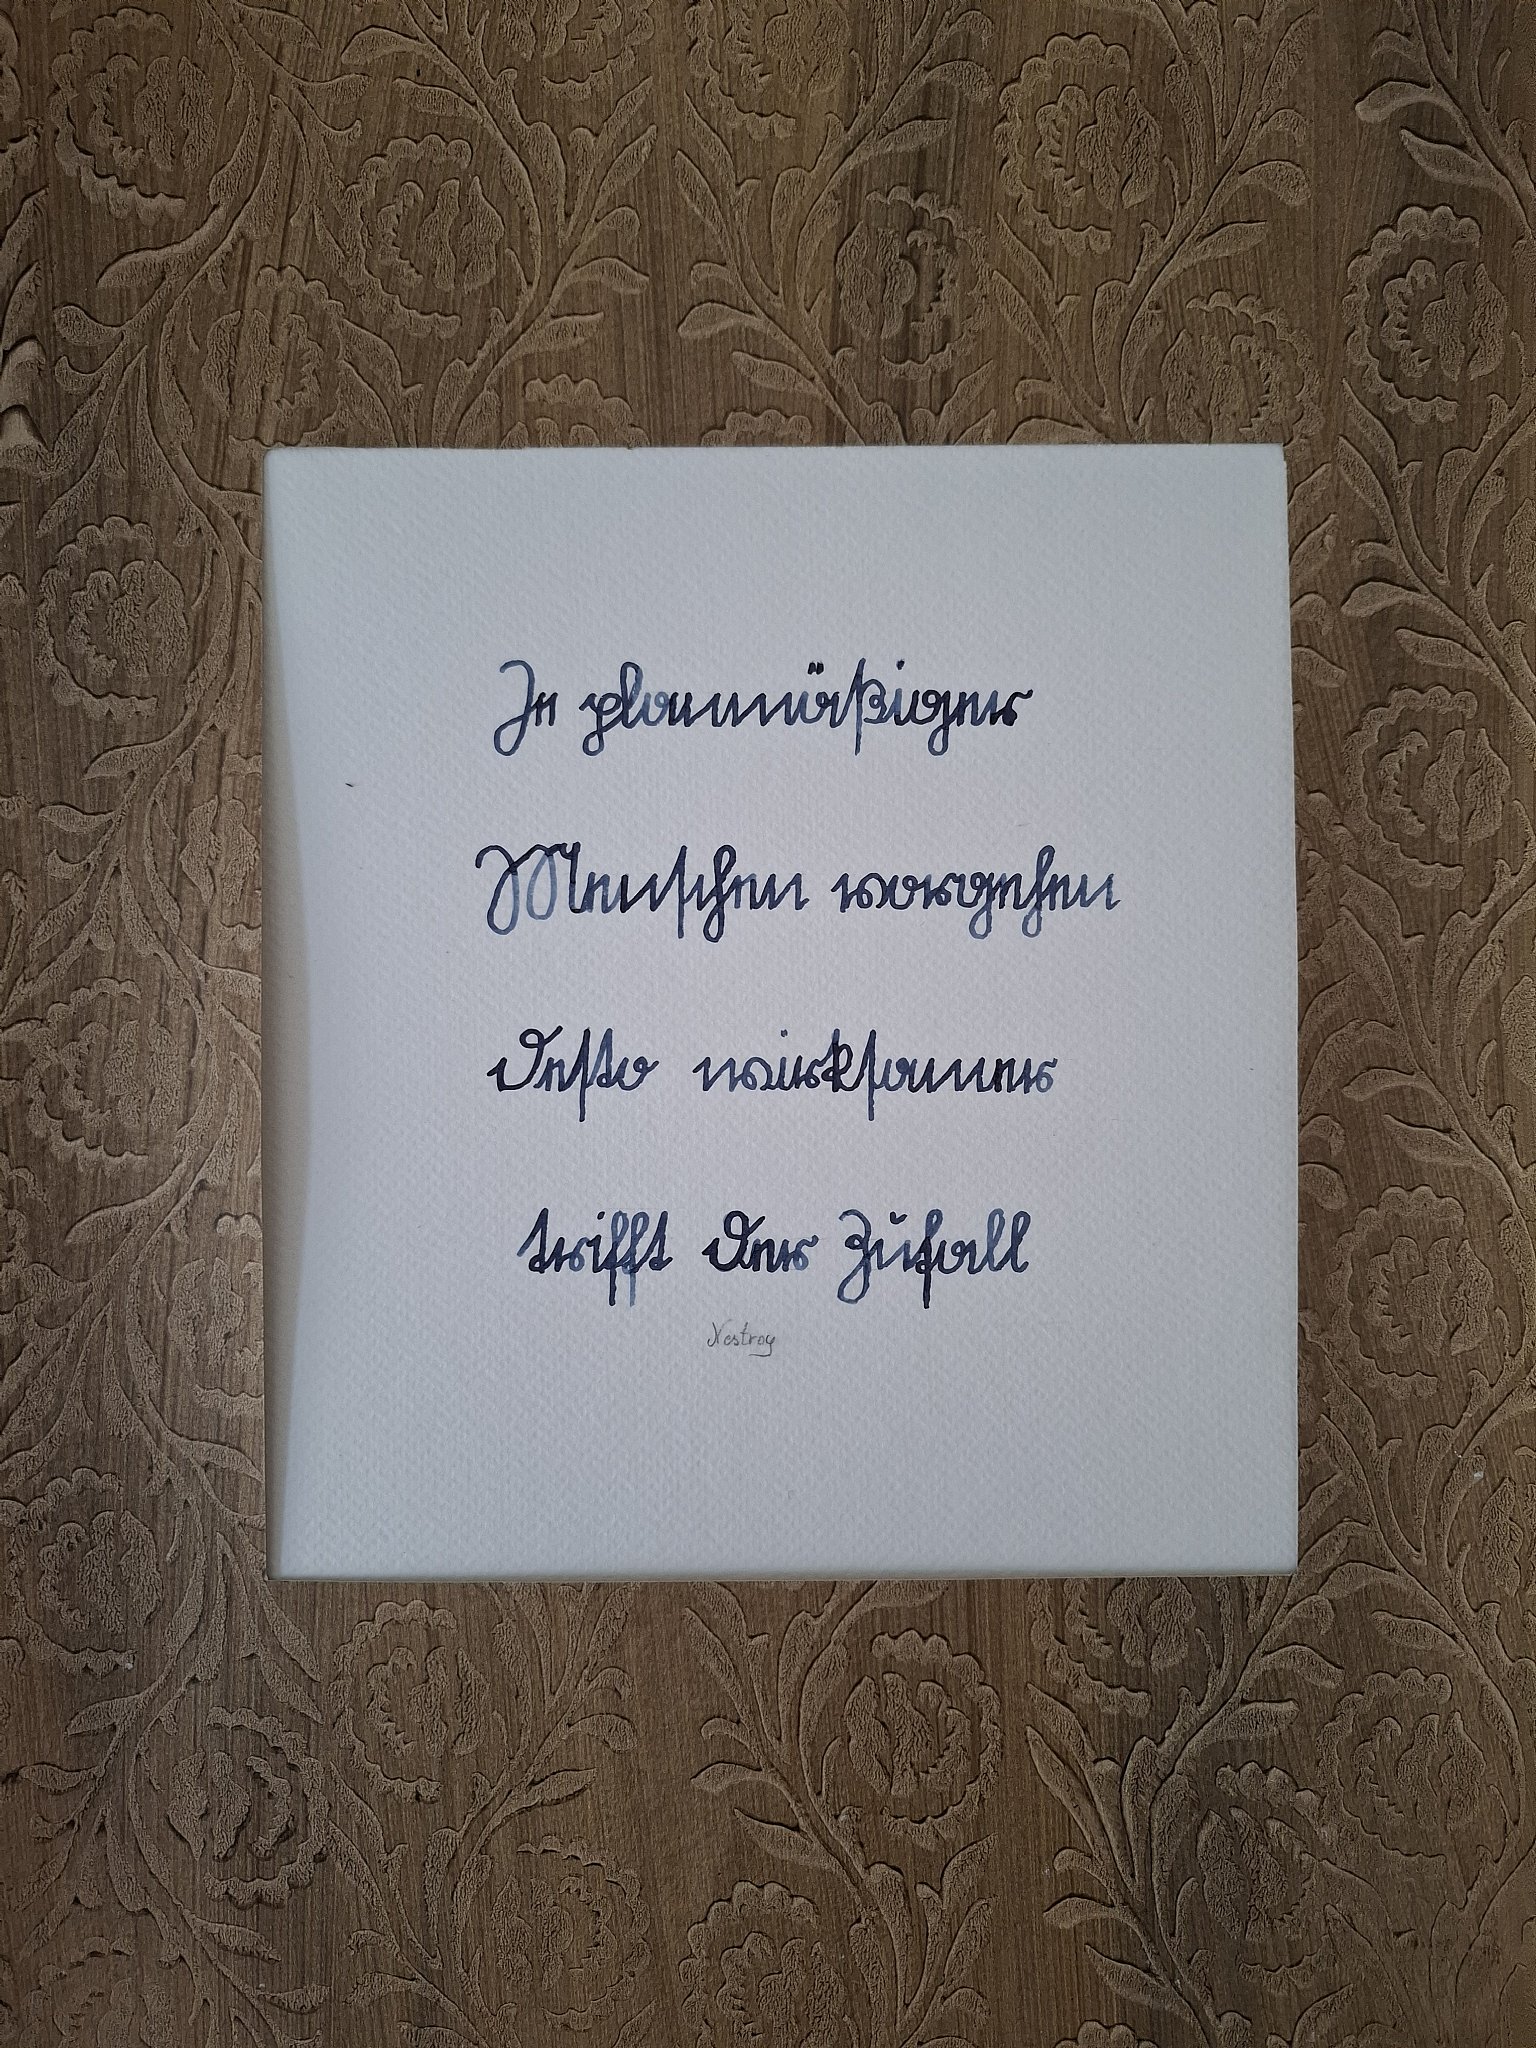 Je planmäßiger
Menschen vorgehen
desto wirksamer
trifft der Zufall
Nestroy